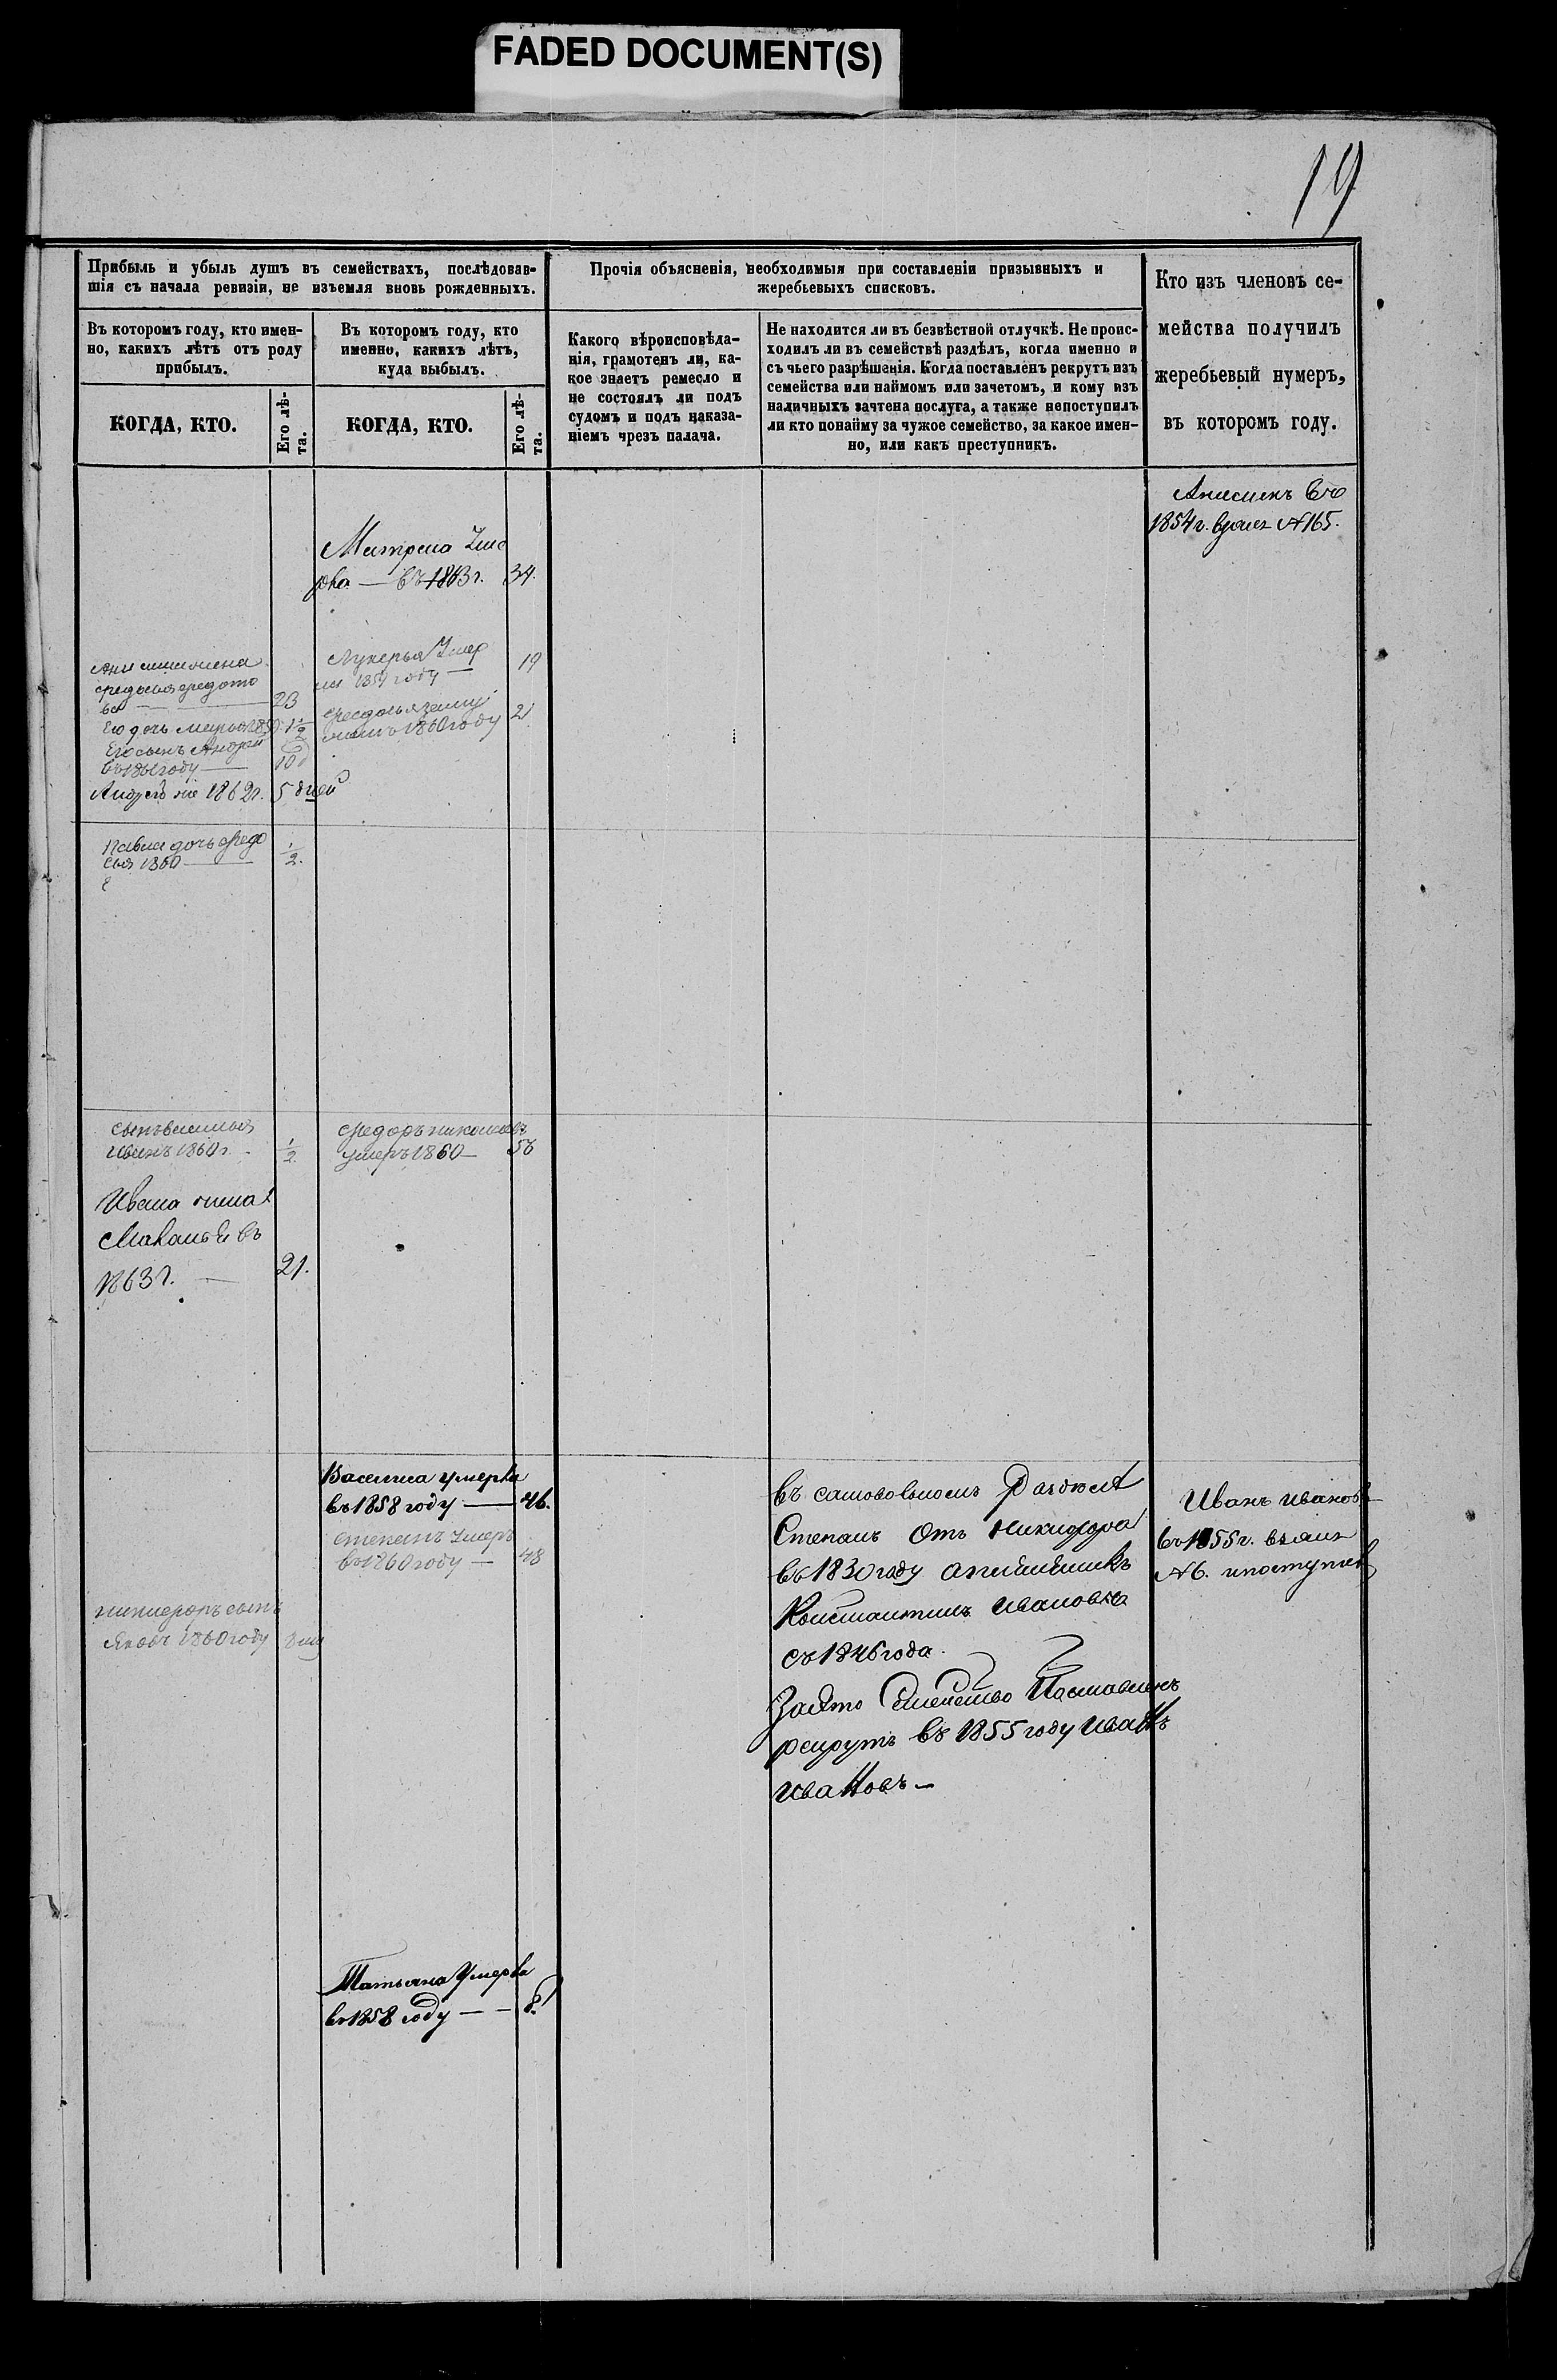 FADED DOCUMENT(S)
19
Прибыль и убыль душъ въ семействахъ, послѣдовав-
шія съ начала ревизіи, не изъемля вновь рожденныхъ.
Прочія объясненія, необходимыя при составленіи призывныхъ и
жеребьевыхъ списковъ.
Кто изъ членовъ се-
мейства получилъ
жеребьевый нумеръ,
въ которомъ году.
Въ которомъ году, кто имен-
но, какихъ лѣтъ отъ роду
прибылъ.
Въ которомъ году, кто
именно, какихъ лѣтъ,
куда выбылъ.
Какого вѣроисповѣда-
нія, грамотенъ ли, ка-
кое знаетъ ремесло и
не состоялъ ли подъ
судомъ и подъ наказа-
ніемъ чрезъ палача.
Не находится ли въ безвѣстной отлучкѣ. Не проис-
ходилъ ли въ семействѣ раздѣлъ, когда именно и
съ чьего разрѣшенія. Когда поставленъ рекрутъ изъ
семейства или наймомъ или зачетомъ, и кому изъ
наличныхъ зачтена послуга, а также непоступилъ
ли кто понайму за чужое семейство, за какое имен-
но, или какъ преступникъ.
КОГДА, КТО.
Его лѣ-
та.
КОГДА, КТО.
Его лѣ-
та.
1854 г. № 165.
Матрена Уме
рла — въ 1863 г. 34.
Лукерья Умер
1859 году — 19
23
Его дочь Марья 1 1/2
1860 году 21
Его сынъ Андрей
въ 1861 году — 10
1862 г. 5 дней
дочь Федо
сья 1860 — 1/2.
сынъ Василья
Иванъ 1860 г. 1/2
Федоръ Николаевъ
умеръ 1860 — 56
Ивана жена
въ
1863 г. — 21.
Василиса умерла
въ 1858 году — 46.
Степанъ Умеръ
въ 1860 году — 48
Никифоръ сынъ
Яковъ 1860 году
въ самовольномъ
Степанъ Отъ Никифора
въ 1830 году
Константинъ Ивановъ
съ 1846 года.
Семейство Поставленъ
рекрутъ въ 1855 году Иванъ
Ивановъ —
Иванъ Ивановъ
въ 1855 г. взялъ
№ 6. и поступилъ
Татьяна Умерла
въ 1858 году — — 8.